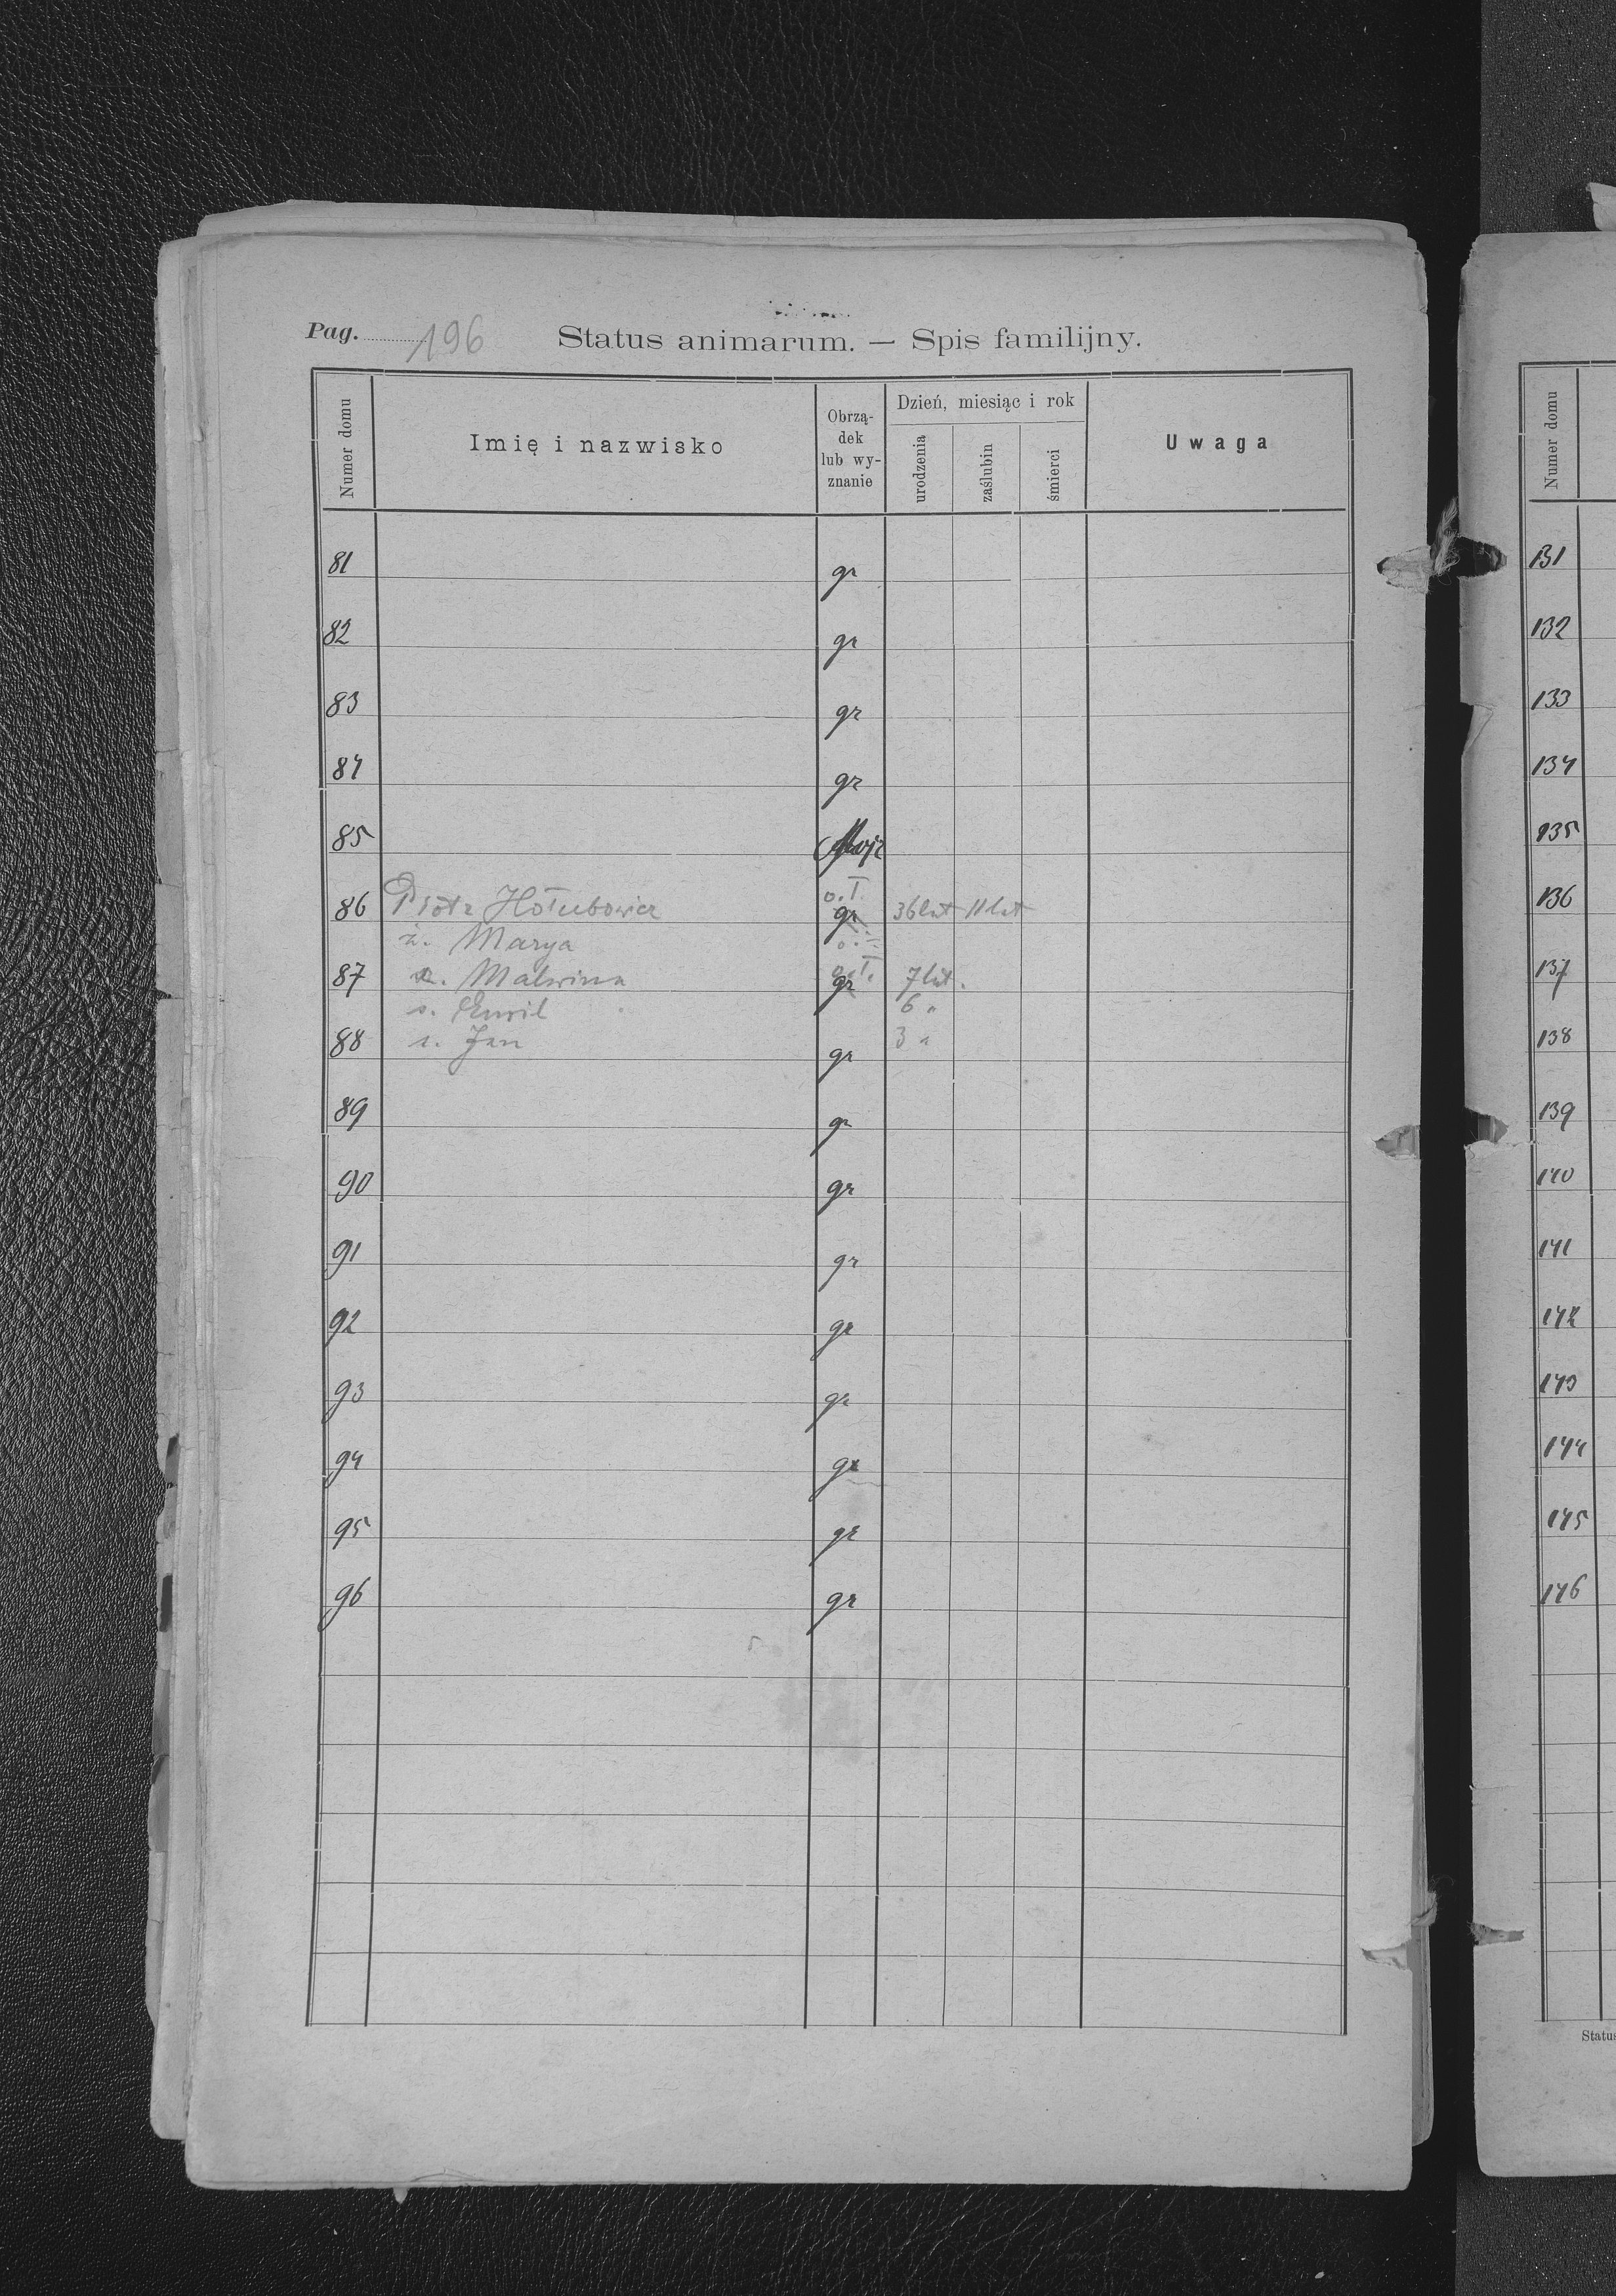 Pag. 196 Status animarum. — Spis familijny.
Numer domu
Imię i nazwisko
Obrzą-
dek
lub wy-
znanie
Dzień, miesiąc i rok
urodzenia
zaślubin
śmierci
Uwaga
81 gr
82 gr
83 gr
84 gr
85 Mojż
86 Piotr Hołubowicz o.ł. gr 36 lat 11 lat
ż. Marya
87 Malwina gr 7 lat.
s. Emil 6 "
88 s. Jan gr 3 "
89 gr
90 gr
91 gr
92 gr
93 gr
94 gr
95 gr
96 gr
Numer domu
131
132
133
134
135
136
137
138
139
140
141
142
143
144
145
146
Status